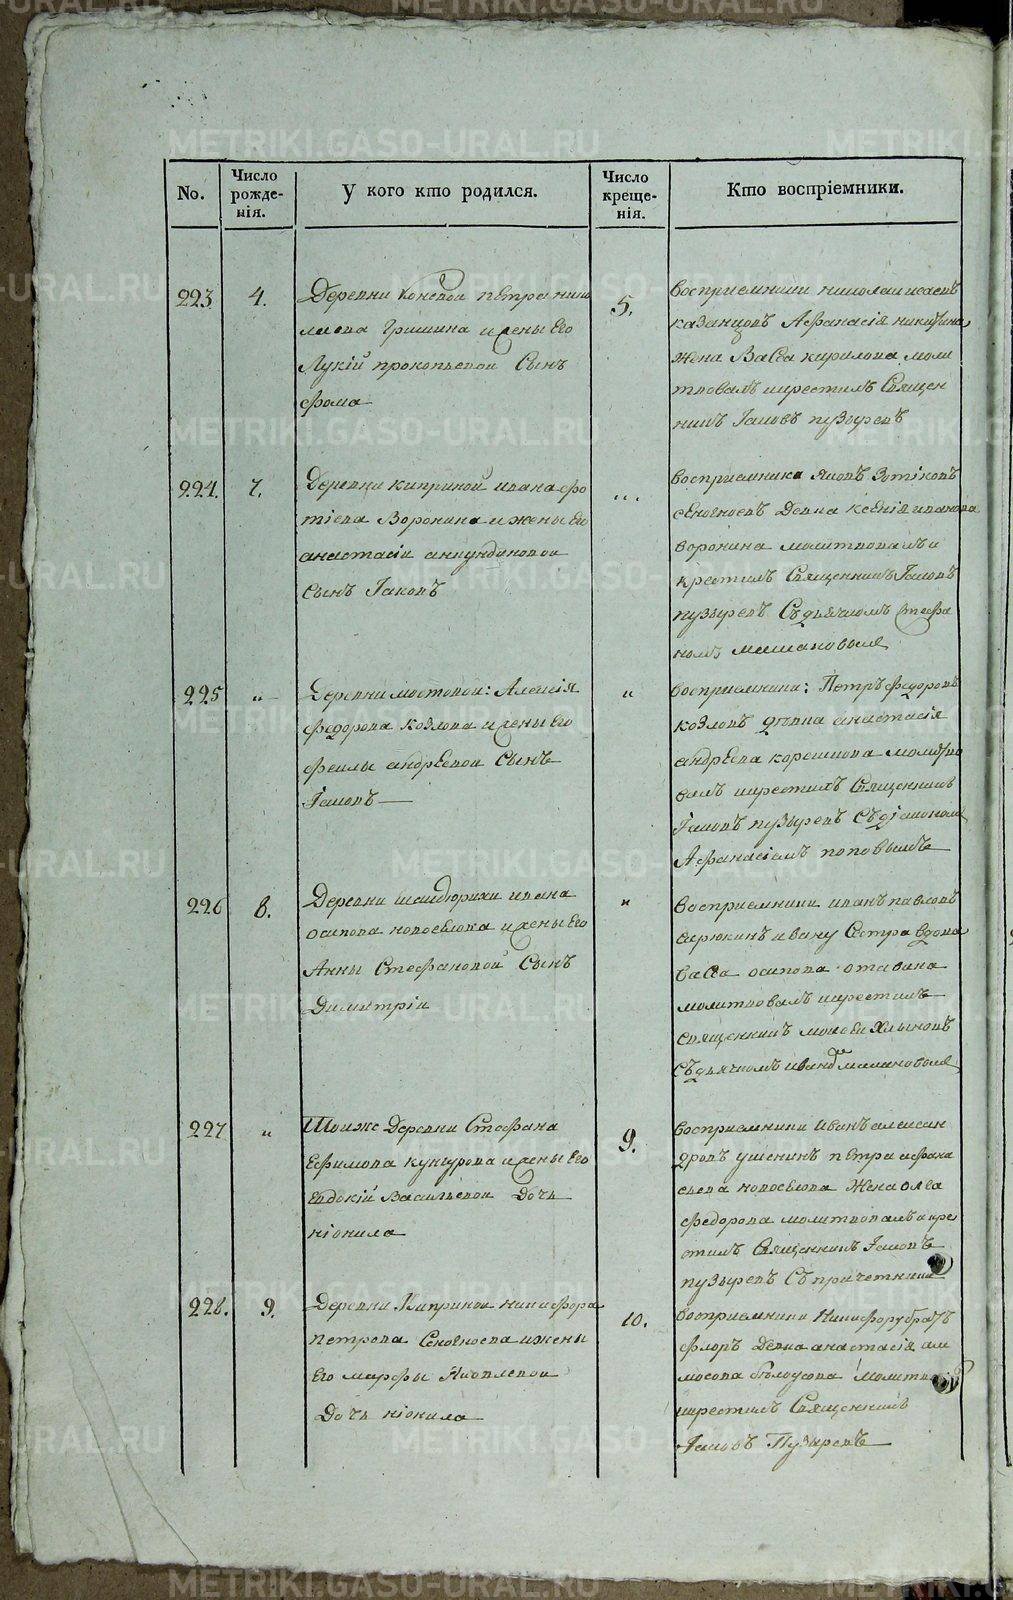 METRIKI.GASO-URAL.RU
No.
Число рожде-нія.
У кого кто родился.
Число креще-нія.
Кто воспріемники.
223
4.
Деревни Коневой петра нико
лаева Гришина и жены Его
Лукій прокопьевой Сынъ
фома
5.
восприемники николаи исаевъ
казанцовъ Афанасія никитина
жена Васса кирилова моли
твовалъ икрестилъ Священ
никъ Іаковъ пузыревъ
224.
7.
Деревни киприной ивана фо
тіева Воронина и жены Его
анастасіи
сынъ Іаковъ
восприемники Яковъ Зотіковъ
Девка ксенія иванова
воронина молитвовалъ и
крестилъ Священникъ Іаковъ
пузыревъ Съдьячкомъ Стефа
номъ
225
"
Деревни мостовой: Алексія
федорова козлова и жены Его
феклы андреевой Сынъ
Іаковъ
"
восприемники: Петръ федоровъ
козловъ девка анастасія
андреева молитво
валъ икрестилъ Священникъ
Іаковъ пузыревъ Съдіакономъ
Афанасіемъ поповымъ
226
8.
Деревни ивана
осипова новоселова и жены Его
Анны Стефановой Сынъ
Димитріи
"
восприемники иванъ павловъ
ивану Сестра вдова
васса осипова
молитвовалъ икрестилъ
священникъ
Съдьячкомъ
227
"
Тоиже Деревни Стефана
Ефимова кунгурова и жены Его
Евдокіи Васильевой Дочь
ніонила
9.
восприемники Иванъ алексан
дровъ петра афана
сьева новоселова Жена
федорова молитвовалъ икре
стилъ Священникъ Іаковъ
пузыревъ Съпричетники
228.
9.
Деревни Киприной никифора
петрова и жены
Его марфы Дочь ніонила
10.
восприемники Никифору братъ
флоръ Девка анастасія ам
мосова
икрестилъ Священникъ
Іаковъ Пузыревъ